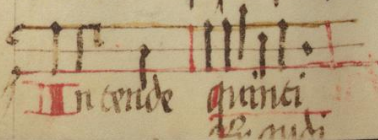 Intende quinti